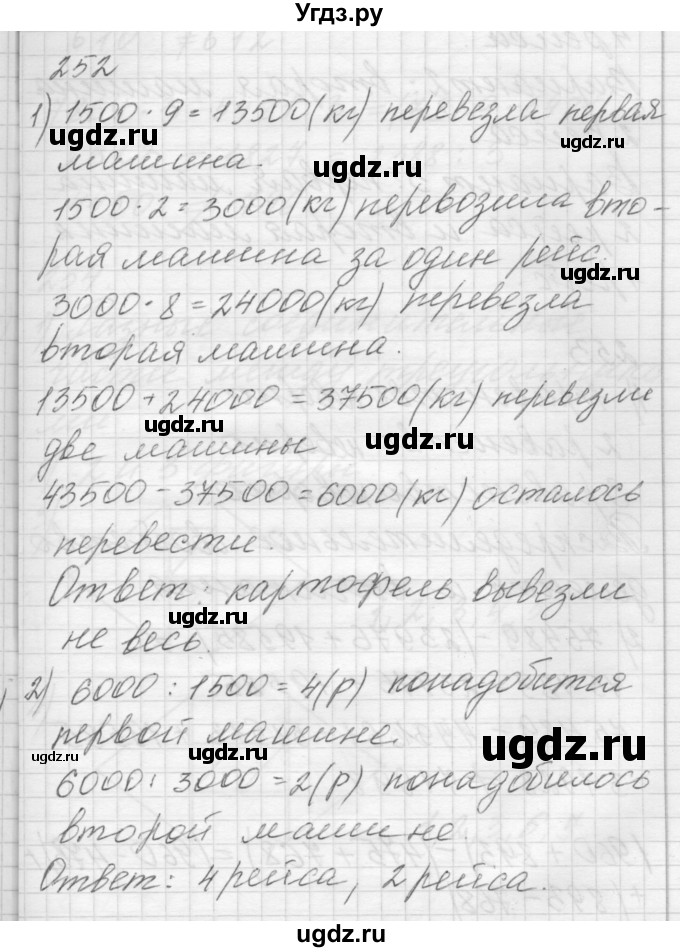 Угдз.ру
252
1) 1500 · 9 = 13500 (кг) перевезла первая
ugdz.ru ugdz.ru
машина.
ugdz.ru
1500 · 2 = 3000 (кг) перевозила вто-
рая машина за один рейс.
ugdz.ru
3000 · 8 = 24000 (кг) перевезла
вторая машина.
13500 + 24000 = 37500 (кг) перевезли
ugdz.ru ugdz.ru
две машины
43500 - 37500 = 6000 (кг) осталось
перевести.
Ответ: картофель вывезли
ugdz.ru
не весь.
2) 6000 : 1500 = 4 (р) понадобится
первой машине.
ugdz.ru ugdz.ru ugdz.ru
6000 : 3000 = 2 (р) понадобилось
второй машине.
Ответ: 4 рейса, 2 рейса.
ugdz.ru